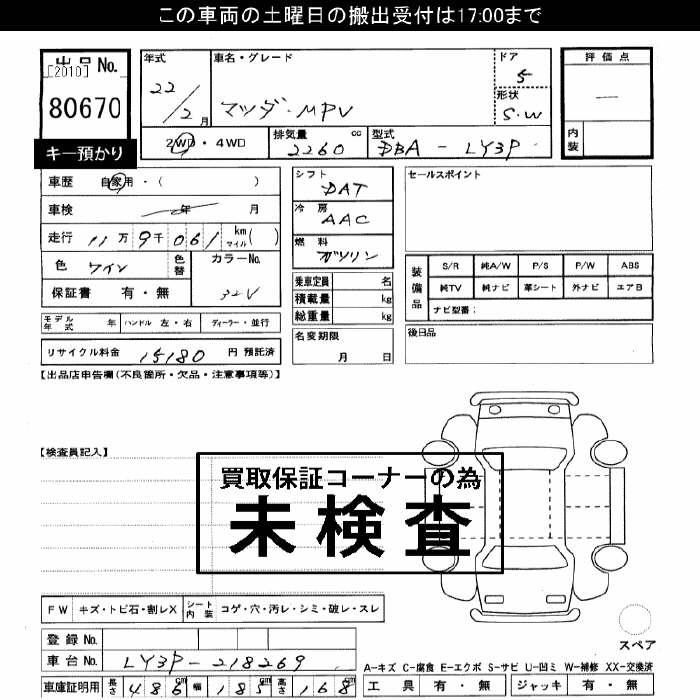 この車両の土曜日の搬出受付は17:00まで
出品No.
[2010]
80670
キー預かり
年式
22/2月
車名・グレード
マツダ・MPV
ドア
5
形状
S・W
評価点
―
内装
2WD・4WD
排気量
2260 cc
型式
DBA-LY3P
車歴 自家用・( )
車検 年 月
走行 11万9千061 km マイル( )
色 ワイン
色替
カラーNo.
32V
保証書 有・無
シフト
DAT
冷房
AAC
燃料
ガソリン
乗車定員 名
積載量 kg
総重量 kg
名変期限
月 日
セールスポイント
装備品
S/R 純A/W P/S P/W ABS
純TV 純ナビ 革シート 外ナビ エアB
ナビ型番:
後日品
モデル年式 年 ハンドル 左・右 ディーラー・並行
リサイクル料金 15180 円 預託済
【出品店申告欄(不良箇所・欠品・注意事項等)】
【検査員記入】
買取保証コーナーの為
未検査
FW キズ・トビ石・割レX シート内装 コゲ・穴・汚レ・シミ・破レ・スレ
登録No.
車台No. LY3P-218269
車庫証明用 長さ 486cm 幅 185cm 高さ 168cm
スペア
A-キズ C-腐食 E-エクボ S-サビ U-凹ミ W-補修 XX-交換済
工具 有・無 ジャッキ 有・無